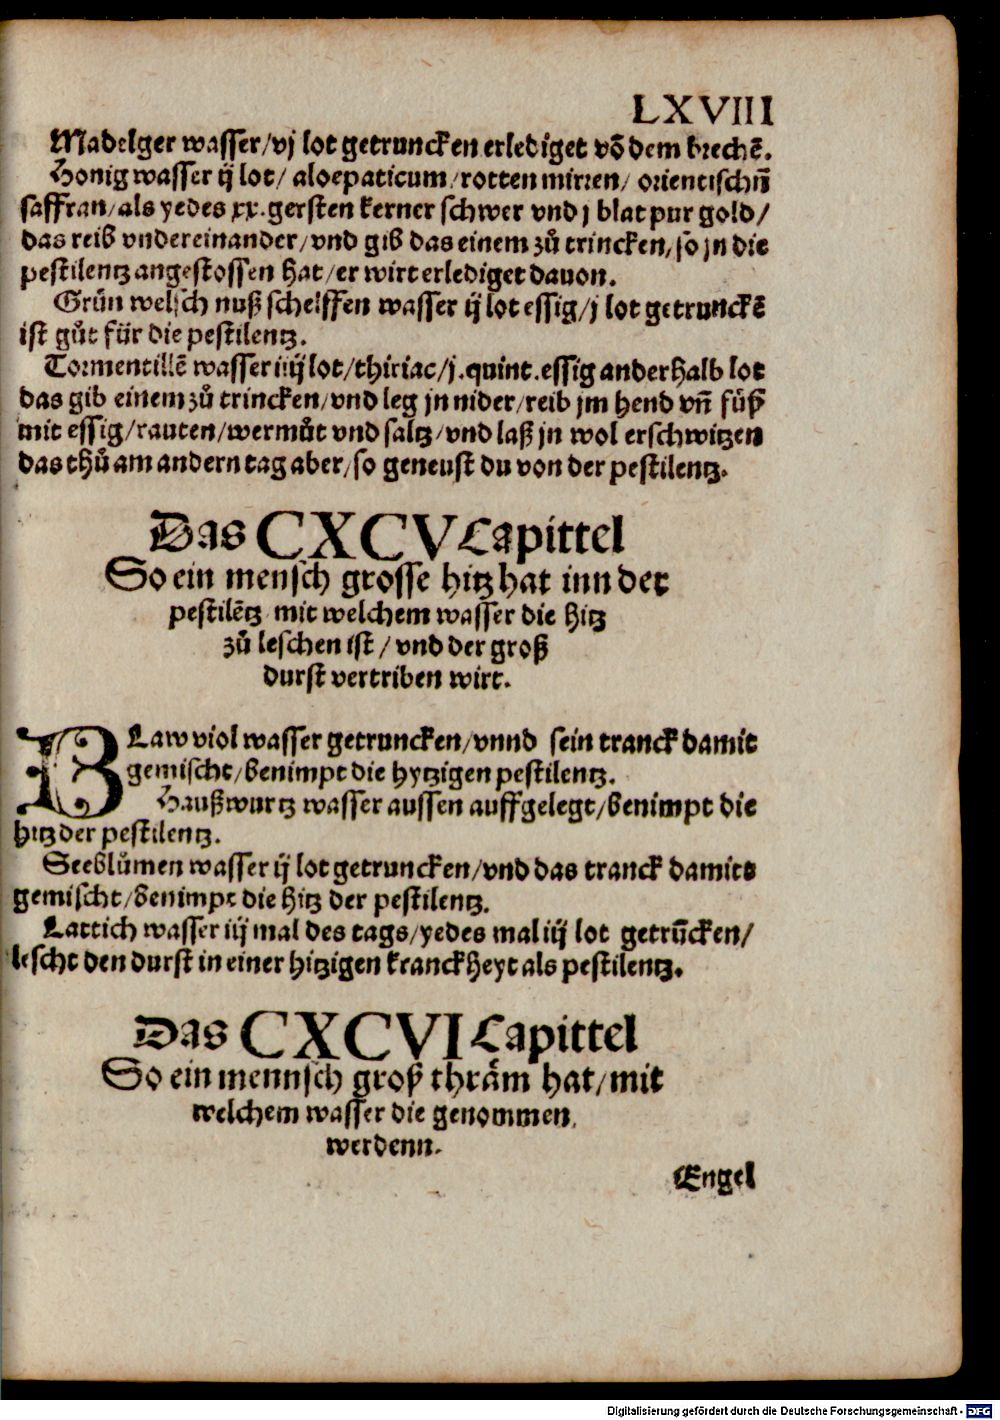 LXVIII
Madelger wasser/vj lot getruncken erlediget võ dem brechẽ.
Honig wasser ij lot/ aloepaticum/rotten mirren/ orientischñ
saffran/als yedes xx.gersten kerner schwer vnd j blat pur gold/
das reib vndereinander/vnd gib das einem zů trincken/so jn die
pestilentz angestossen hat/er wirt erlediget dauon.
Grün welsch nuß schelffen wasser ij lot essig/j lot getrunckẽ
ist gůt für die pestilentz.
Tormentillẽ wasser iiij lot/thiriac/j.quint.essig anderhalb lot
das gib einem zů trincken/vnd leg jn nider/reib jm hend vñ füß
mit essig/rauten/wermůt vnd saltz/vnd laß jn wol erschwitzen
das thů am andern tag aber/so geneust du von der pestilentz.
Das CXCV Capittel
So ein mensch grosse hitz hat inn der
pestilẽtz mit welchem wasser die hitz
zů leschen ist/vnd der groß
durst vertriben wirt.
BLaw viol wasser getruncken/vnnd sein tranck damit
gemischt/benimpt die hytzigen pestilentz.
Haußwurtz wasser aussen auffgelegt/benimpt die
hitz der pestilentz.
Seeblůmen wasser ij lot getruncken/vnd das tranck damits
gemischt/benimpt die hitz der pestilentz.
Lattich wasser iij mal des tags/yedes mal iij lot getrũcken/
lescht den durst in einer hitzigen kranckheyt als pestilentz.
Das CXCVI Capittel
So ein mennsch groß thräm hat/mit
welchem wasser die genommen
werdenn.
Engel
Digitalisierung gefördert durch die Deutsche Forschungsgemeinschaft - DFG